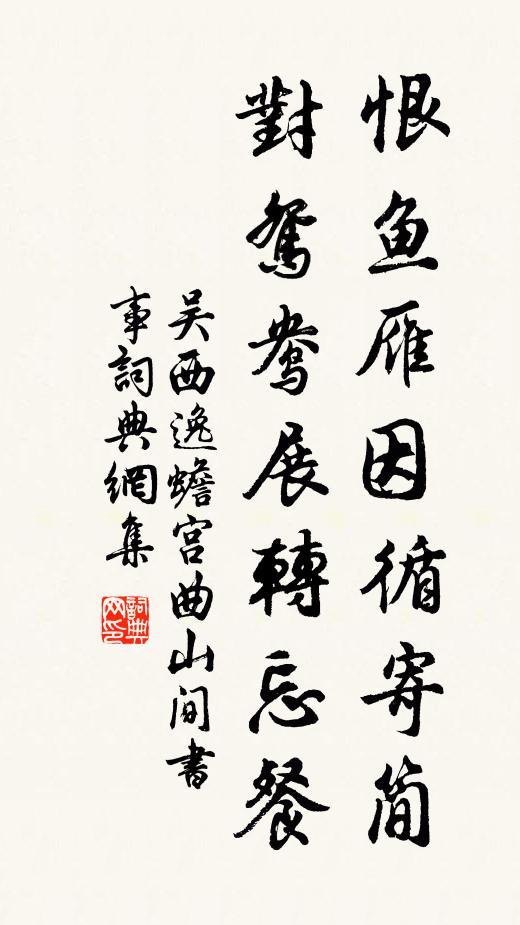 恨鱼雁因循寄简
對鴛鴦展轉忘餐
吴西逸蟾宫曲山间書
事詞典網集
詞典
网印